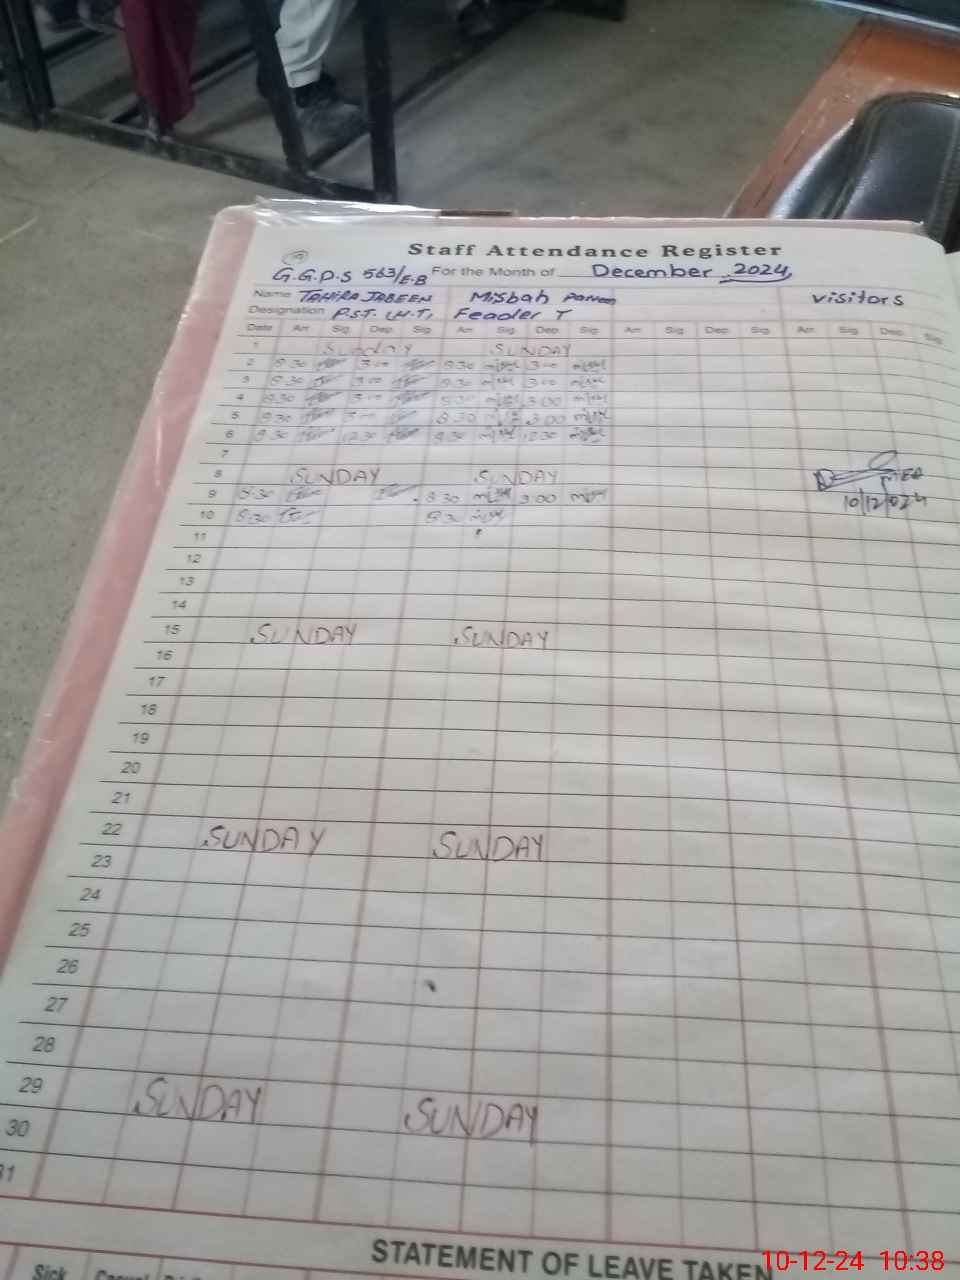 19
Staff Attendance Register
G.G.P.S 563/E.B For the Month of December 2024
Name TAHIRA JABEEN Misbah visitors
Designation P.S.T.
Date Arr Sig. Dep. Sig. Arr. Sig. Dep. Sig. Arr. Sig. Dep. Sig. Arr. Sig. Dep. Sig.
1 Sunday SUNDAY
2 8:30 3:00 8:30 3:00
3 8:30 3:00 8:30 3:00
4 8:30 3:00 8:30 3:00
5 8:30 3:00 8:30 3:00
6 8:30 12:30 8:30 12:30
7
8 SUNDAY SUNDAY
9 8:30 8:30 3:00
10 8:30 8:30 10/12/024
11
12
13
14
15 SUNDAY SUNDAY
16
17
18
19
20
21
22 SUNDAY SUNDAY
23
24
25
26
27
28
29 SUNDAY SUNDAY
30
31
STATEMENT OF LEAVE TAKEN
Sick Casual
10-12-24 10:38